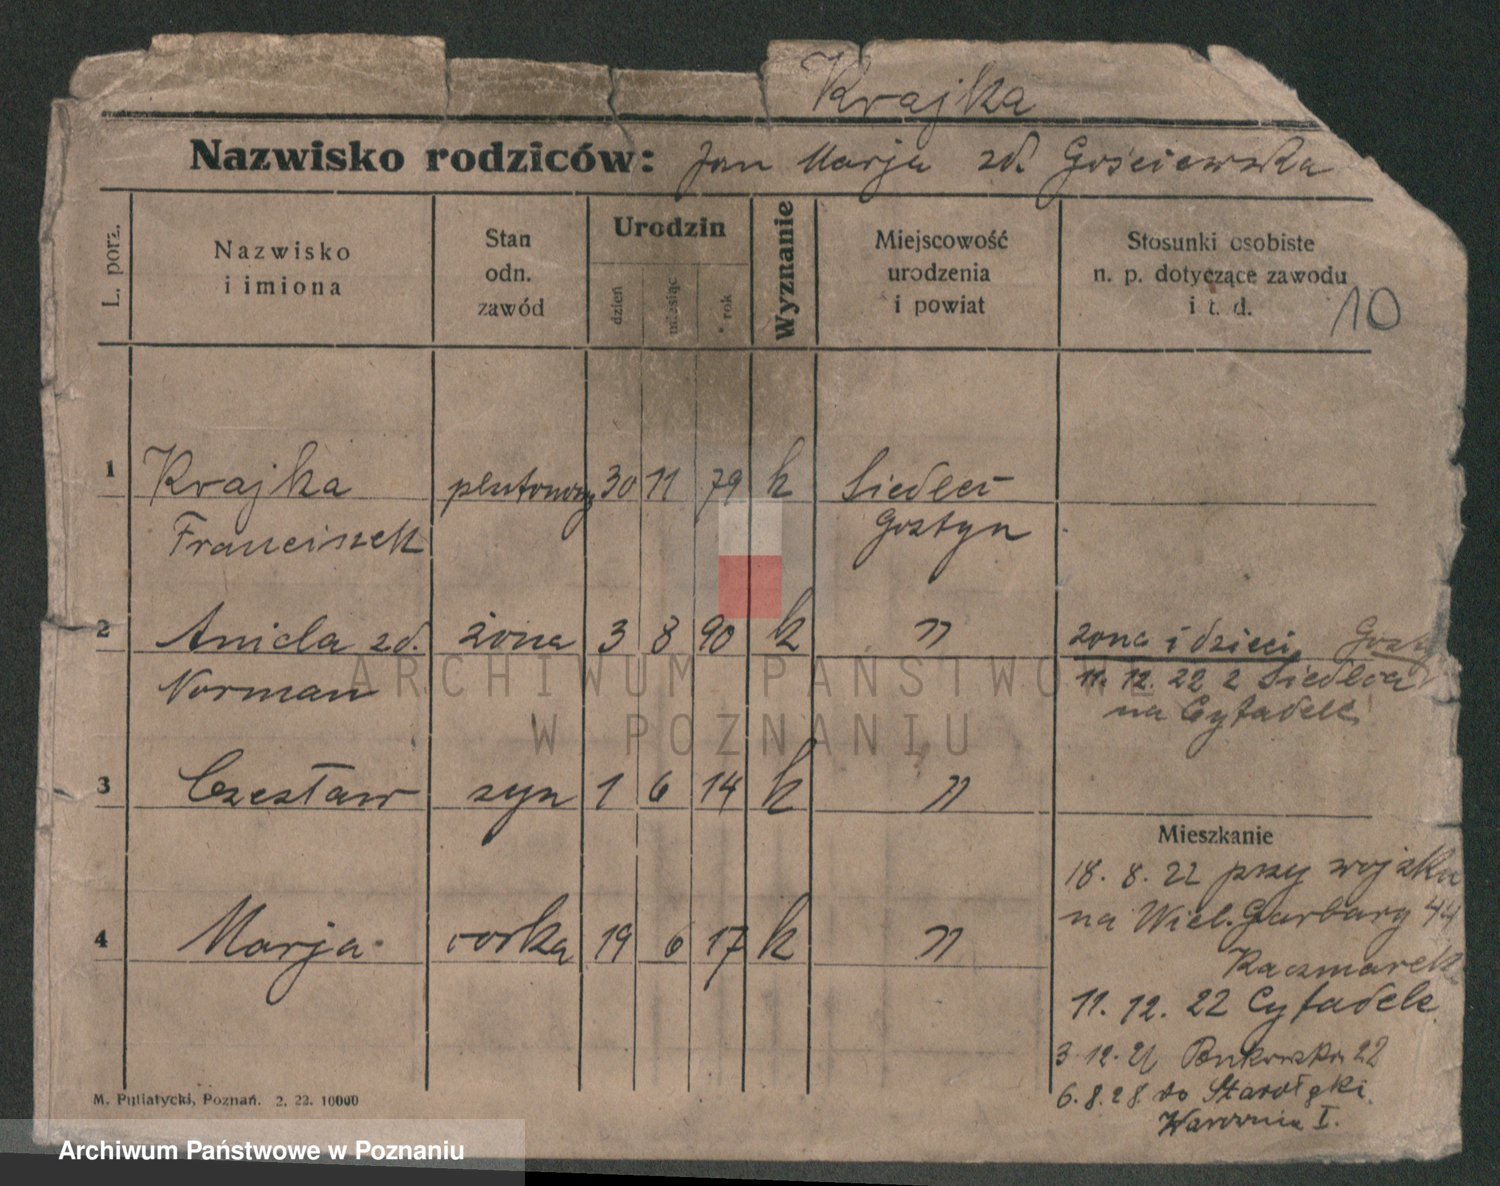 Krajka
Nazwisko rodziców: Jan Marja zd. Gościewska
L. porz.
Nazwisko
i imiona
Stan
odn.
zawód
Urodzin
dzień
miesiąc
rok
Wyznanie
Miejscowość
urodzenia
i powiat
Stosunki osobiste
n. p. dotyczące zawodu
i t. d.
10
1 Krajka plutonowy 30 11 79 k Siedlec
Franciszek Gostyn
2 Aniela zd. żona 3 8 90 k "
Norman
żona i dzieci
11. 12. 22 z Siedlca
na Cytadelę
3 Czesław syn 1 6 14 k "
4 Marja córka 19 6 17 k "
Mieszkanie
18. 8. 22 przy wojsku
na Wiel. Garbary 44
Kaczmarek
11. 12. 22 Cytadela
3 12. 22
6. 8. 28 do Starołęki
Warownia I.
M. Putiatycki, Poznań. 2. 22. 10000
ARCHIWUM PAŃSTWOWE
W POZNANIU
Archiwum Państwowe w Poznaniu